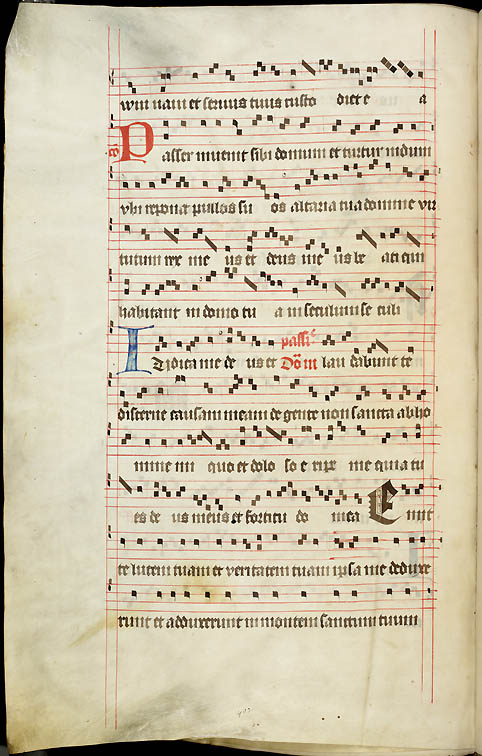 num nam et seruus tuus custo diet e a
co P asser inuenit sibi domum et turtur nidum
vbi reponat pullos su os altaria tua domine vir
tutum rex me us et deus me us be ati qui
habitant in domo tu a in seculum se culi
I Udica me de us et passi͛ Dōm lau dabunt te
discerne causam meam de gente non sancta ab ho
mine ini quo et dolo so e ripe me quia tu
es de us meus et fortitu do mea E mit
te lucem tuam et veritatem tuam ipsa me deduxe
runt et adduxerunt in montem sanctum tuum